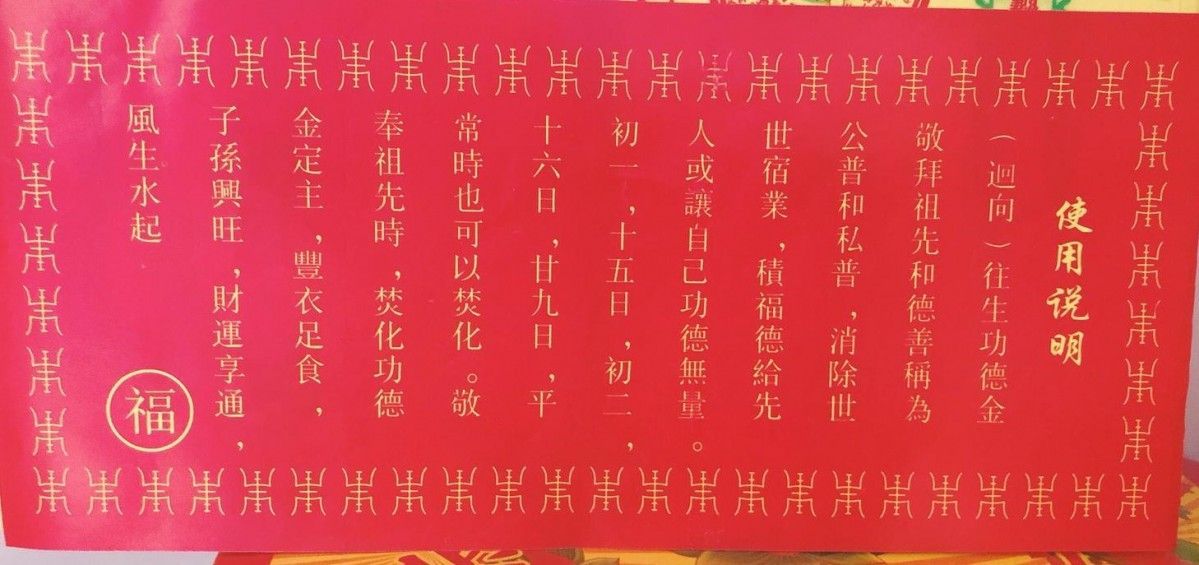 使用说明
（迴向）往生功德金
敬拜祖先和德善稱為
公普和私普，消除世
世宿業，積福德給先
人或讓自己功德無量。
初一，十五日，初二，
十六日，廿九日，平
常時也可以焚化。敬
奉祖先時，焚化功德
金定主，豐衣足食，
子孫興旺，財運享通，
風生水起
福